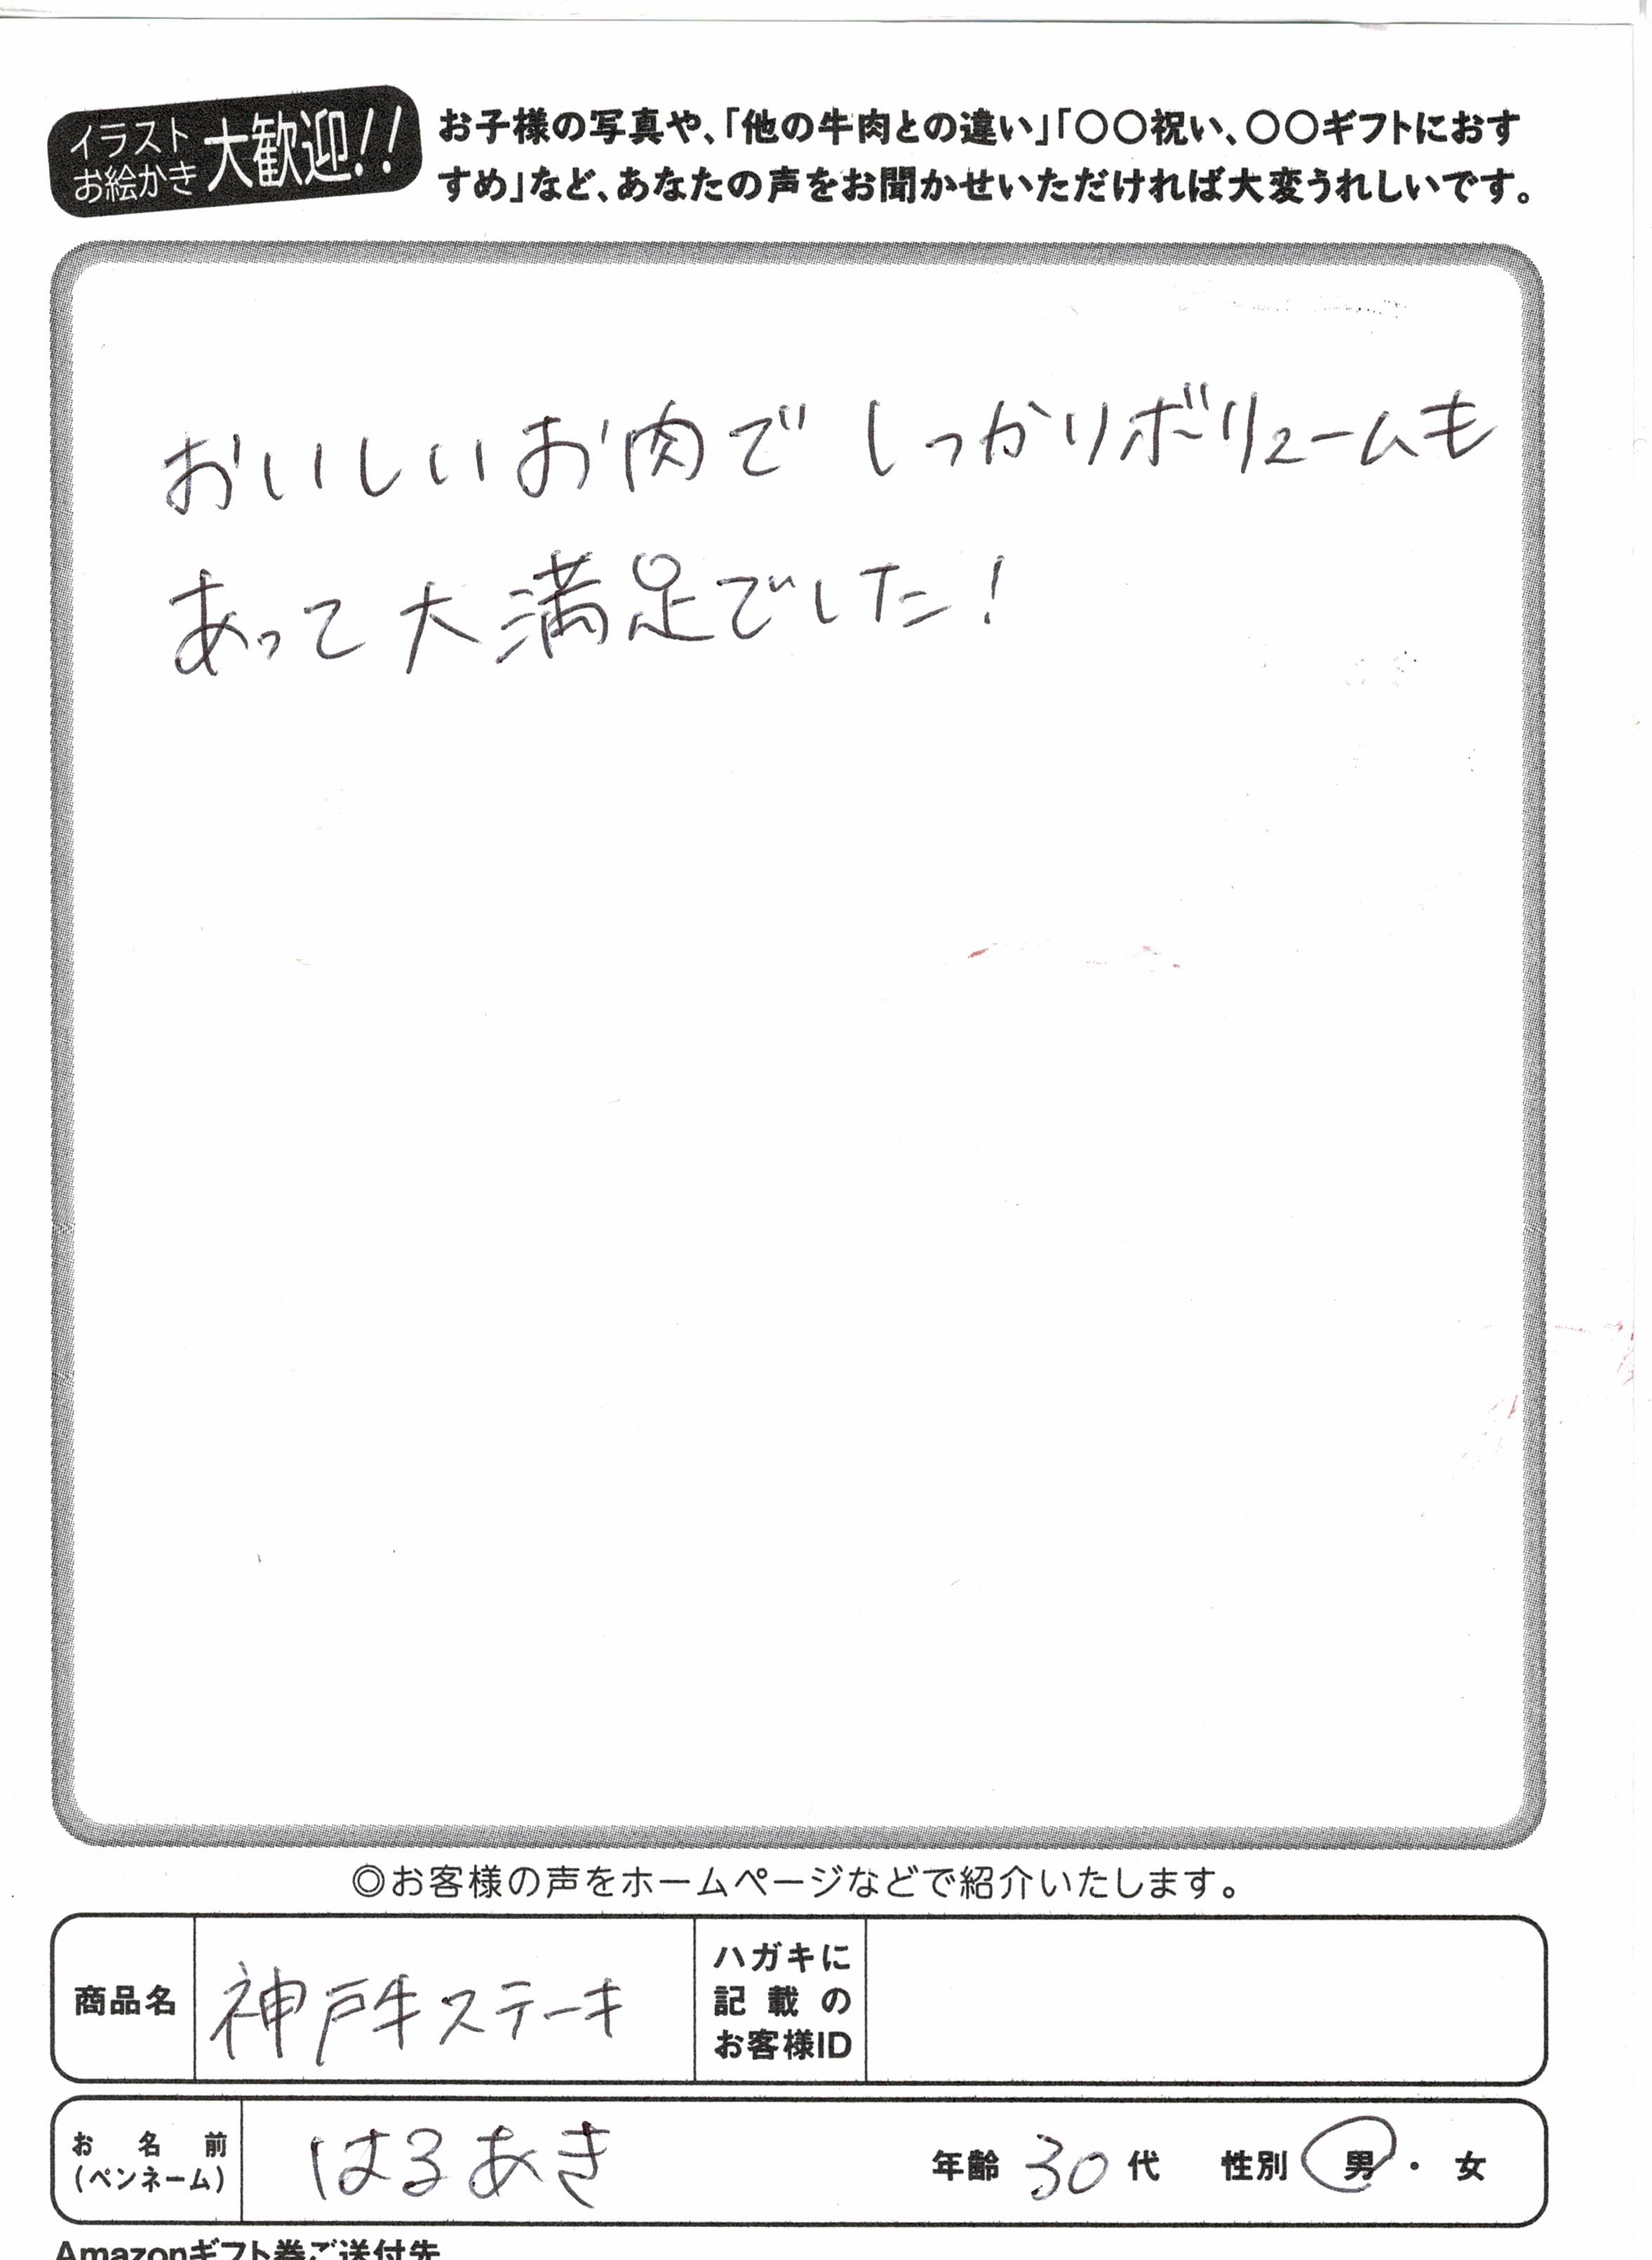 イラスト
お絵かき
大歓迎!!
お子様の写真や、「他の牛肉との違い」「〇〇祝い、〇〇ギフトにおす
すめ」など、あなたの声をお聞かせいただければ大変うれしいです。
おいしいお肉で しっかりボリュームも
あって大満足でした!
◎お客様の声をホームページなどで紹介いたします。
商品名
神戸牛ステーキ
ハガキに
記載の
お客様ID
お名前
(ペンネーム)
はるあき
年齢 30 代 性別 男・女
Amazonギフト券ご送付先